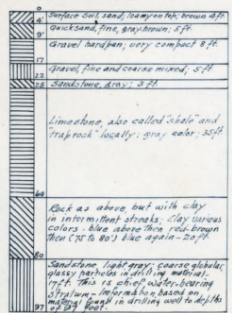 0
Surface soil, sand, loamy on top; brown 4ft.
4
Quicksand, fine, gray-brown; 5ft.
9
Gravel hardpan; very compact 8 ft.
17
Gravel, fine and coarse mixed; 5 ft.
22
Sandstone, gray; 3 ft.
25
Limestone, also called "shale" and
"trap rock" locally; gray color; 35ft.
60
Rock as above, but with clay
in intermittent streaks; clay various
colors - blue above then red-brown
then (75 to 80) blue again - 20 ft.
80
Sandstone, light gray; coarse globular,
glassy particles in drilling material.
17ft. This is chief water-bearing
stratum - Information based on
material found in drilling well to depths
of 97 feet.
97